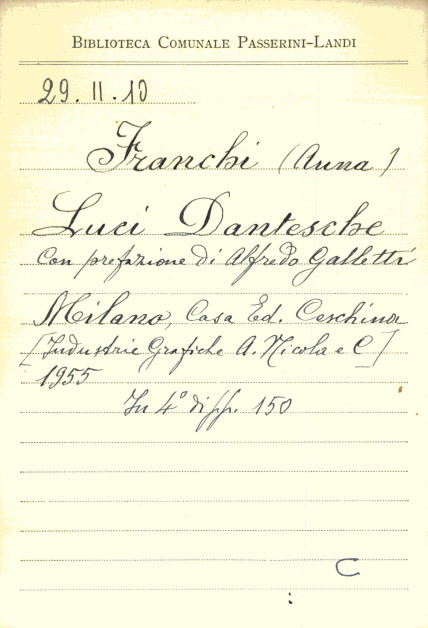 BIBLIOTECA COMUNALE PASSERINI-LANDI
29.11.10
Franchi (Anna)
Luci Dantesche
con prefazione di Alfredo Galletti
Milano, Casa Ed. Ceschina
[Industrie Grafiche A. Nicola e C]
1955
In 4° di pp. 150
C